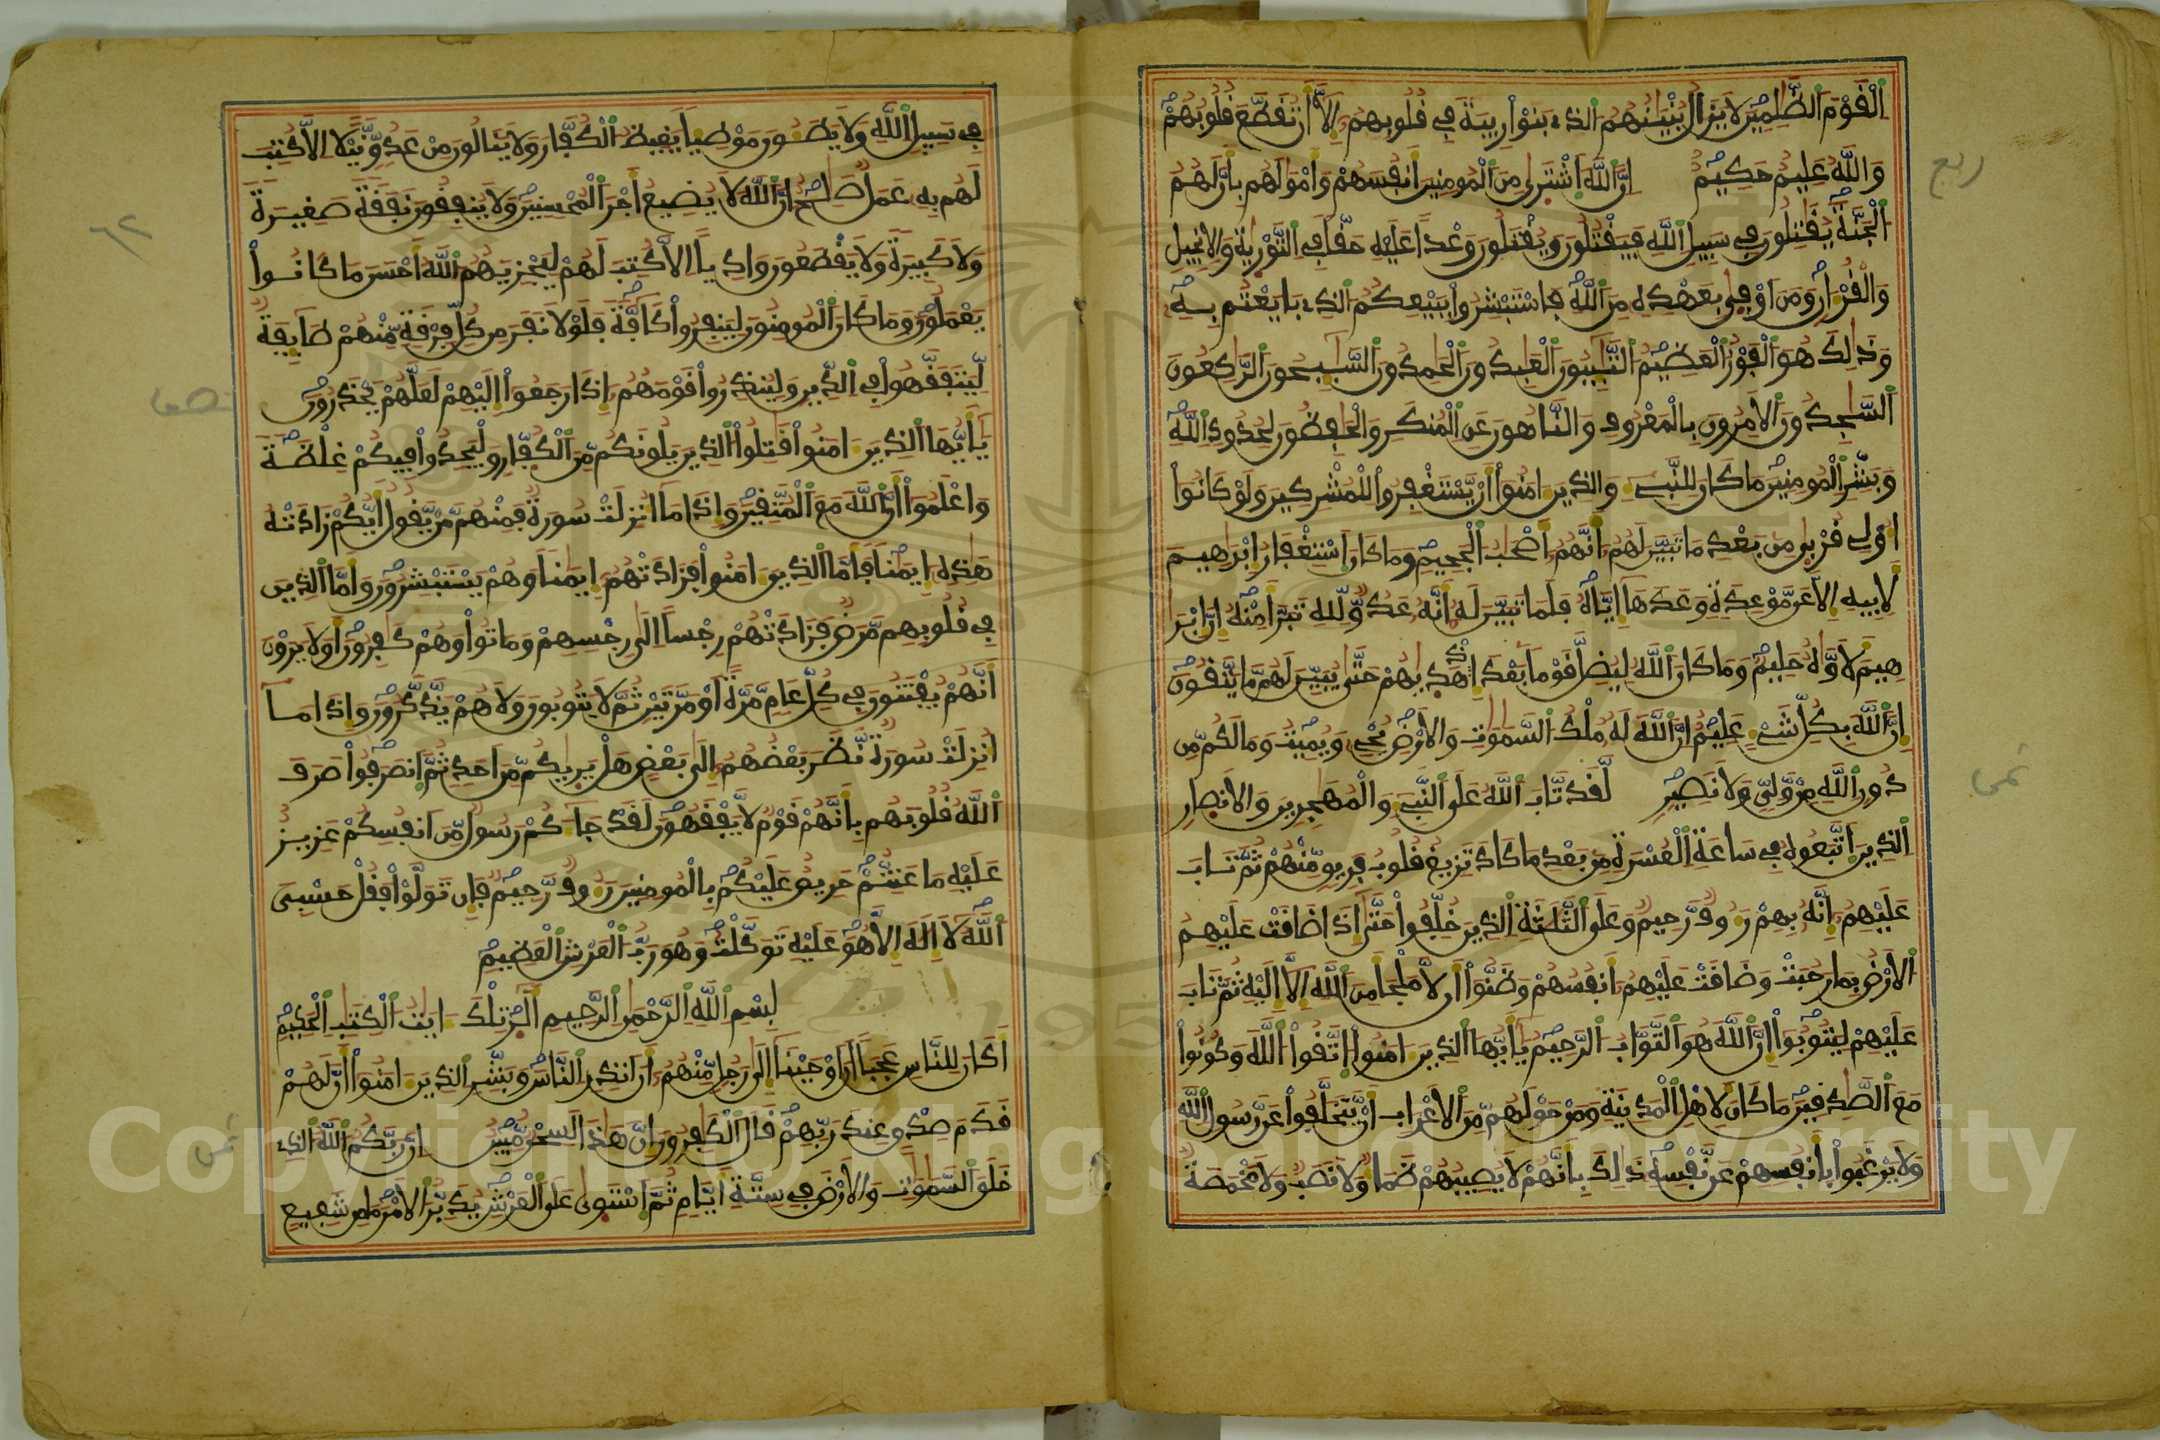 ربع
اَ۬لْقَوْمَ اَ۬لظَّٰلِمِينَ لَا يَزَالُ بُنْيَٰنُهُمُ الذِے بَنَوْاْ رِيبَةٗ فِے قُلُوبِهِمُۥٓ إِلَّآ أَن تُقَطَّعَ قُلُوبُهُمْ
وَاللَّهُ عَلِيمٌ حَكِيمٌ إِنَّ اَ۬للَّهَ اَ۪شْتَر۪يٰ مِنَ اَ۬لْمُومِنِينَ أَنفُسَهُمْ وَأَمْوَٰلَهُم بِأَنَّ لَهُمُ
اُ۬لْجَنَّةَ يُقَٰتِلُونَ فِے سَبِيلِ اِ۬للَّهِ فَيَقْتُلُونَ وَيُقْتَلُونَ وَعْداً عَلَيْهِ حَقّاٗ فِے اِ۬لتَّوْر۪يٰةِ وَالِانجِيلِ
وَالْقُرْءَانِ وَمَنَ اَوْف۪يٰ بِعَهْدِهِۦ مِنَ اَ۬للَّهِ فَاسْتَبْشِرُواْ بِبَيْعِكُمُ الذِے بَايَعْتُم بِهِۦ
وَذَٰلِكَ هُوَ اَ۬لْفَوْزُ اُ۬لْعَظِيمُ اُ۬لتَّٰٓئِبُونَ اَ۬لْعَٰبِدُونَ اَ۬لْحَٰمِدُونَ اَ۬لسَّٰٓئِحُونَ اَ۬لرَّٰكِعُونَ
اَ۬لسَّٰجِدُونَ اَ۬لَامِرُونَ بِالْمَعْرُوفِ وَالنَّاهُونَ عَنِ اِ۬لْمُنكَرِ وَالْحَٰفِظُونَ لِحُدُودِ اِ۬للَّهِ
وَبَشِّرِ اِ۬لْمُومِنِينَ مَا كَانَ لِلنَّبِےٓءِ وَالذِينَ ءَامَنُوٓاْ أَنْ يَّسْتَغْفِرُواْ لِلْمُشْرِكِينَ وَلَوْ كَانُوٓاْ
أُوْلِے قُرْب۪يٰ مِنۢ بَعْدِ مَا تَبَيَّنَ لَهُمُۥٓ أَنَّهُمُۥٓ أَصْحَٰبُ اُ۬لْجَحِيمِ وَمَا كَانَ اَ۪سْتِغْفَارُ إِبْرَٰهِيمَ
لِأَبِيهِ إِلَّا عَن مَّوْعِدَةٖ وَعَدَهَآ إِيَّاهُ فَلَمَّا تَبَيَّنَ لَهُۥٓ أَنَّهُۥ عَدُوّٞ لِّلهِ تَبَرَّأَ مِنْهُ إِنَّ إِبْرَٰ
هِيمَ لَأَوَّٰهٌ حَلِيمٞ وَمَا كَانَ اَ۬للَّهُ لِيُضِلَّ قَوْماَۢ بَعْدَ إِذْ هَد۪يٰهُمْ حَتَّيٰ يُبَيِّنَ لَهُم مَّا يَتَّقُونَ
إِنَّ اَ۬للَّهَ بِكُلِّ شَےْءٍ عَلِيمٌ إِنَّ اَ۬للَّهَ لَهُۥ مُلْكُ اُ۬لسَّمَٰوَٰتِ وَالَارْضِ يُحْيِۦ وَيُمِيتُ وَمَا لَكُم مِّن
دُونِ اِ۬للَّهِ مِنْ وَّلِيّٖ وَلَا نَصِيرٖ لَّقَد تَّابَ اَ۬للَّهُ عَلَي اَ۬لنَّبِےٓءِ وَالْمُهَٰجِرِينَ وَالَانصٰارِ
ثمن
اِ۬لذِينَ اَ۪تَّبَعُوهُ فِے سَاعَةِ اِ۬لْعُسْرَةِ مِنۢ بَعْدِ مَا كَادَ تَزِيغُ قُلُوبُ فَرِيقٖ مِّنْهُمْ ثُمَّ تَابَ
عَلَيْهِمُۥٓ إِنَّهُۥ بِهِمْ رَءُوفٞ رَّحِيمٞ وَعَلَي اَ۬لثَّلَٰثَةِ اِ۬لذِينَ خُلِّفُواْ حَتَّيٰٓ إِذَا ضَاقَتْ عَلَيْهِمُ
اُ۬لَارْضُ بِمَا رَحُبَتْ وَضَاقَتْ عَلَيْهِمُۥٓ أَنفُسُهُمْ وَظَنُّوٓاْ أَن لَّا مَلْجَأَ مِنَ اَ۬للَّهِ إِلَّآ إِلَيْهِ ثُمَّ تَابَ
عَلَيْهِمْ لِيَتُوبُوٓاْ إِنَّ اَ۬للَّهَ هُوَ اَ۬لتَّوَّابُ اُ۬لرَّحِيمُ يَٰٓأَيُّهَا اَ۬لذِينَ ءَامَنُواْ اُ۪تَّقُواْ اُ۬للَّهَ وَكُونُواْ
مَعَ اَ۬لصَّٰدِقِينَ مَا كَانَ لِأَهْلِ اِ۬لْمَدِينَةِ وَمَنْ حَوْلَهُم مِّنَ اَ۬لَاعْرَابِ أَنْ يَّتَخَلَّفُواْ عَن رَّسُولِ اِ۬للَّهِ
وَلَا يَرْغَبُواْ بِأَنفُسِهِمْ عَن نَّفْسِهِۦ ذَٰلِكَ بِأَنَّهُمْ لَا يُصِيبُهُمْ ظَمَأٞ وَلَا نَصَبٞ وَلَا مَخْمَصَةٞ
فِے سَبِيلِ اِ۬للَّهِ وَلَا يَطَـُٔونَ مَوْطِئاٗ يَغِيظُ اُ۬لْكُفَّارَ وَلَا يَنَالُونَ مِنْ عَدُوّٖ نَّيْلًا إِلَّا كُتِبَ
لَهُم بِهِۦ عَمَلٞ صَٰلِحٌ إِنَّ اَ۬للَّهَ لَا يُضِيعُ أَجْرَ اَ۬لْمُحْسِنِينَ وَلَا يُنفِقُونَ نَفَقَةٗ صَغِيرَةٗ
٦٢
وَلَا كَبِيرَةٗ وَلَا يَقْطَعُونَ وَادِياً إِلَّا كُتِبَ لَهُمْ لِيَجْزِيَهُمُ اُ۬للَّهُ أَحْسَنَ مَا كَانُواْ
يَعْمَلُونَ وَمَا كَانَ اَ۬لْمُومِنُونَ لِيَنفِرُواْ كَآفَّةٗ فَلَوْلَا نَفَرَ مِن كُلِّ فِرْقَةٖ مِّنْهُمْ طَآئِفَةٞ
لِّيَتَفَقَّهُواْ فِے اِ۬لدِّينِ وَلِيُنذِرُواْ قَوْمَهُمُۥٓ إِذَا رَجَعُوٓاْ إِلَيْهِمْ لَعَلَّهُمْ يَحْذَرُونَ
نصف
يَٰٓأَيُّهَا اَ۬لذِينَ ءَامَنُواْ قَٰتِلُواْ اُ۬لذِينَ يَلُونَكُم مِّنَ اَ۬لْكُفّ۪ارِ وَلْيَجِدُواْ فِيكُمْ غِلْظَةٗ
وَاعْلَمُوٓاْ أَنَّ اَ۬للَّهَ مَعَ اَ۬لْمُتَّقِينَ وَإِذَا مَآ أُنزِلَتْ سُورَةٞ فَمِنْهُم مَّنْ يَّقُولُ أَيُّكُمْ زَادَتْهُ
هَٰذِهِۦٓ إِيمَٰناٗ فَأَمَّا اَ۬لذِينَ ءَامَنُواْ فَزَادَتْهُمُۥٓ إِيمَٰناٗ وَهُمْ يَسْتَبْشِرُونَ وَأَمَّا اَ۬لذِينَ
فِے قُلُوبِهِم مَّرَضٞ فَزَادَتْهُمْ رِجْساً إِلَيٰ رِجْسِهِمْ وَمَاتُواْ وَهُمْ كَٰفِرُونَ أَوَلَا يَرَوْنَ
أَنَّهُمْ يُفْتَنُونَ فِے كُلِّ عَامٖ مَّرَّةً أَوْ مَرَّتَيْنِ ثُمَّ لَا يَتُوبُونَ وَلَا هُمْ يَذَّكَّرُونَ وَإِذَا مَآ
أُنزِلَتْ سُورَةٞ نَّظَرَ بَعْضُهُمُۥٓ إِلَيٰ بَعْضٍ هَلْ يَر۪يٰكُم مِّنَ اَحَدٖ ثُمَّ اَ۪نصَرَفُواْ صَرَفَ
اَ۬للَّهُ قُلُوبَهُم بِأَنَّهُمْ قَوْمٞ لَّا يَفْقَهُونَ لَقَدْ جَآءَكُمْ رَسُولٞ مِّنَ اَنفُسِكُمْ عَزِيزٌ
عَلَيْهِ مَا عَنِتُّمْ حَرِيصٌ عَلَيْكُم بِالْمُومِنِينَ رَءُوفٞ رَّحِيمٞ فَإِن تَوَلَّوْاْ فَقُلْ حَسْبِيَ
اَ۬للَّهُ لَآ إِلَٰهَ إِلَّا هُوَ عَلَيْهِ تَوَكَّلْتُ وَهُوَ رَبُّ اُ۬لْعَرْشِ اِ۬لْعَظِيمِ
بِسْمِ اِ۬للَّهِ اِ۬لرَّحْمَٰنِ اِ۬لرَّحِيمِ أَلَٓر۪ تِلْكَ ءَايَٰتُ اُ۬لْكِتَٰبِ اِ۬لْحَكِيمِ
أَكَانَ لِلنَّاسِ عَجَباً أَنَ اَوْحَيْنَآ إِلَيٰ رَجُلٖ مِّنْهُمُۥٓ أَنَ اَنذِرِ اِ۬لنَّاسَ وَبَشِّرِ اِ۬لذِينَ ءَامَنُوٓاْ أَنَّ لَهُمْ
قَدَمَ صِدْقٍ عِندَ رَبِّهِمْ قَالَ اَ۬لْكَٰفِرُونَ إِنَّ هَٰذَا لَسِحْرٞ مُّبِينٌ إِنَّ رَبَّكُمُ اُ۬للَّهُ اُ۬لذِے
ثمن
خَلَقَ اَ۬لسَّمَٰوَٰتِ وَالَارْضَ فِے سِتَّةِ أَيَّامٖ ثُمَّ اَ۪سْتَو۪يٰ عَلَي اَ۬لْعَرْشِ يُدَبِّرُ اُ۬لَامْرَ مَا مِن شَفِيعٍ
Copyright © King Saud University
195